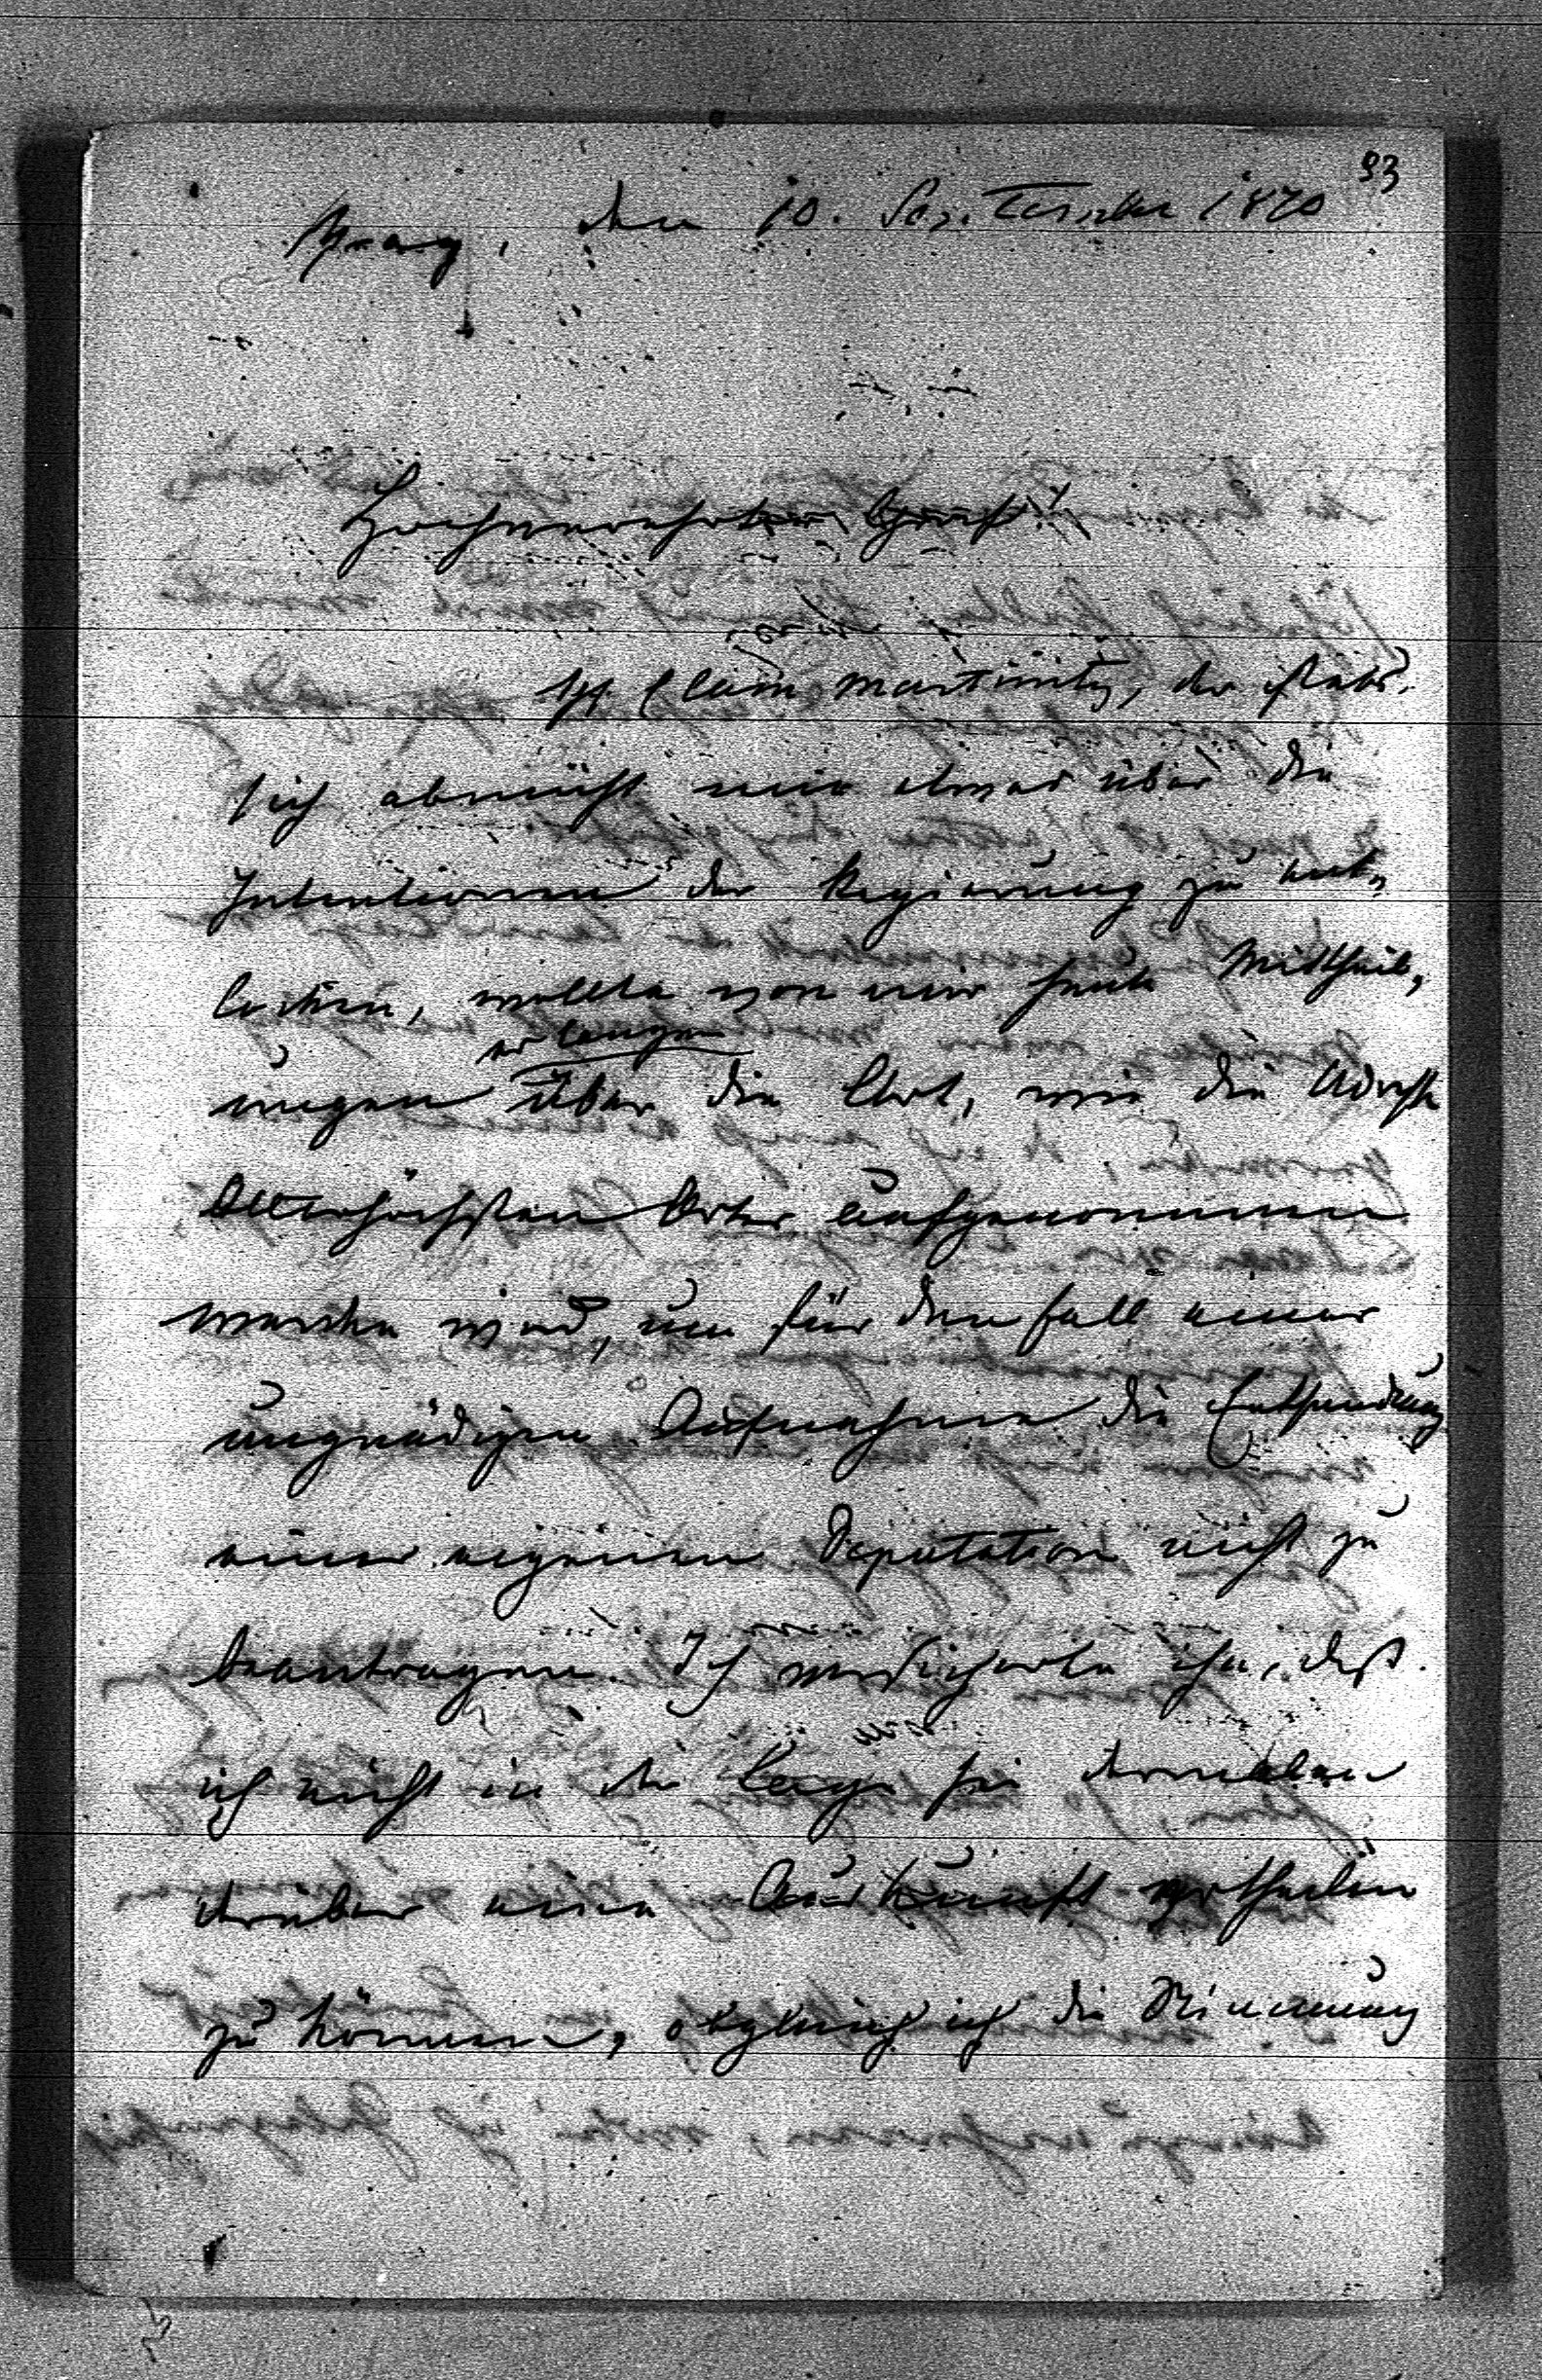 93
Prag, den 10. September 1870
Hochverehrter Graf!
Clam Martinitz, der stets
sich abmüht mir etwas über die
Intentionen der Regierung zu ent„
locken, wollte von mir heute Mittheil„
erlangen
ungen über die Art, wie die Adresse
Allerhöchsten Ortes aufgenommen
werden wird, um für den Fall einer
ungnädigen Aufnahme die Entsendung
einer eigenen Deputation nicht zu
beantragen. Ich versicherte ihn, daß
ich nicht in der Lage sei demselben
darüber eine Auskunft ertheilen
zu können, obgleich ich die Stimmung